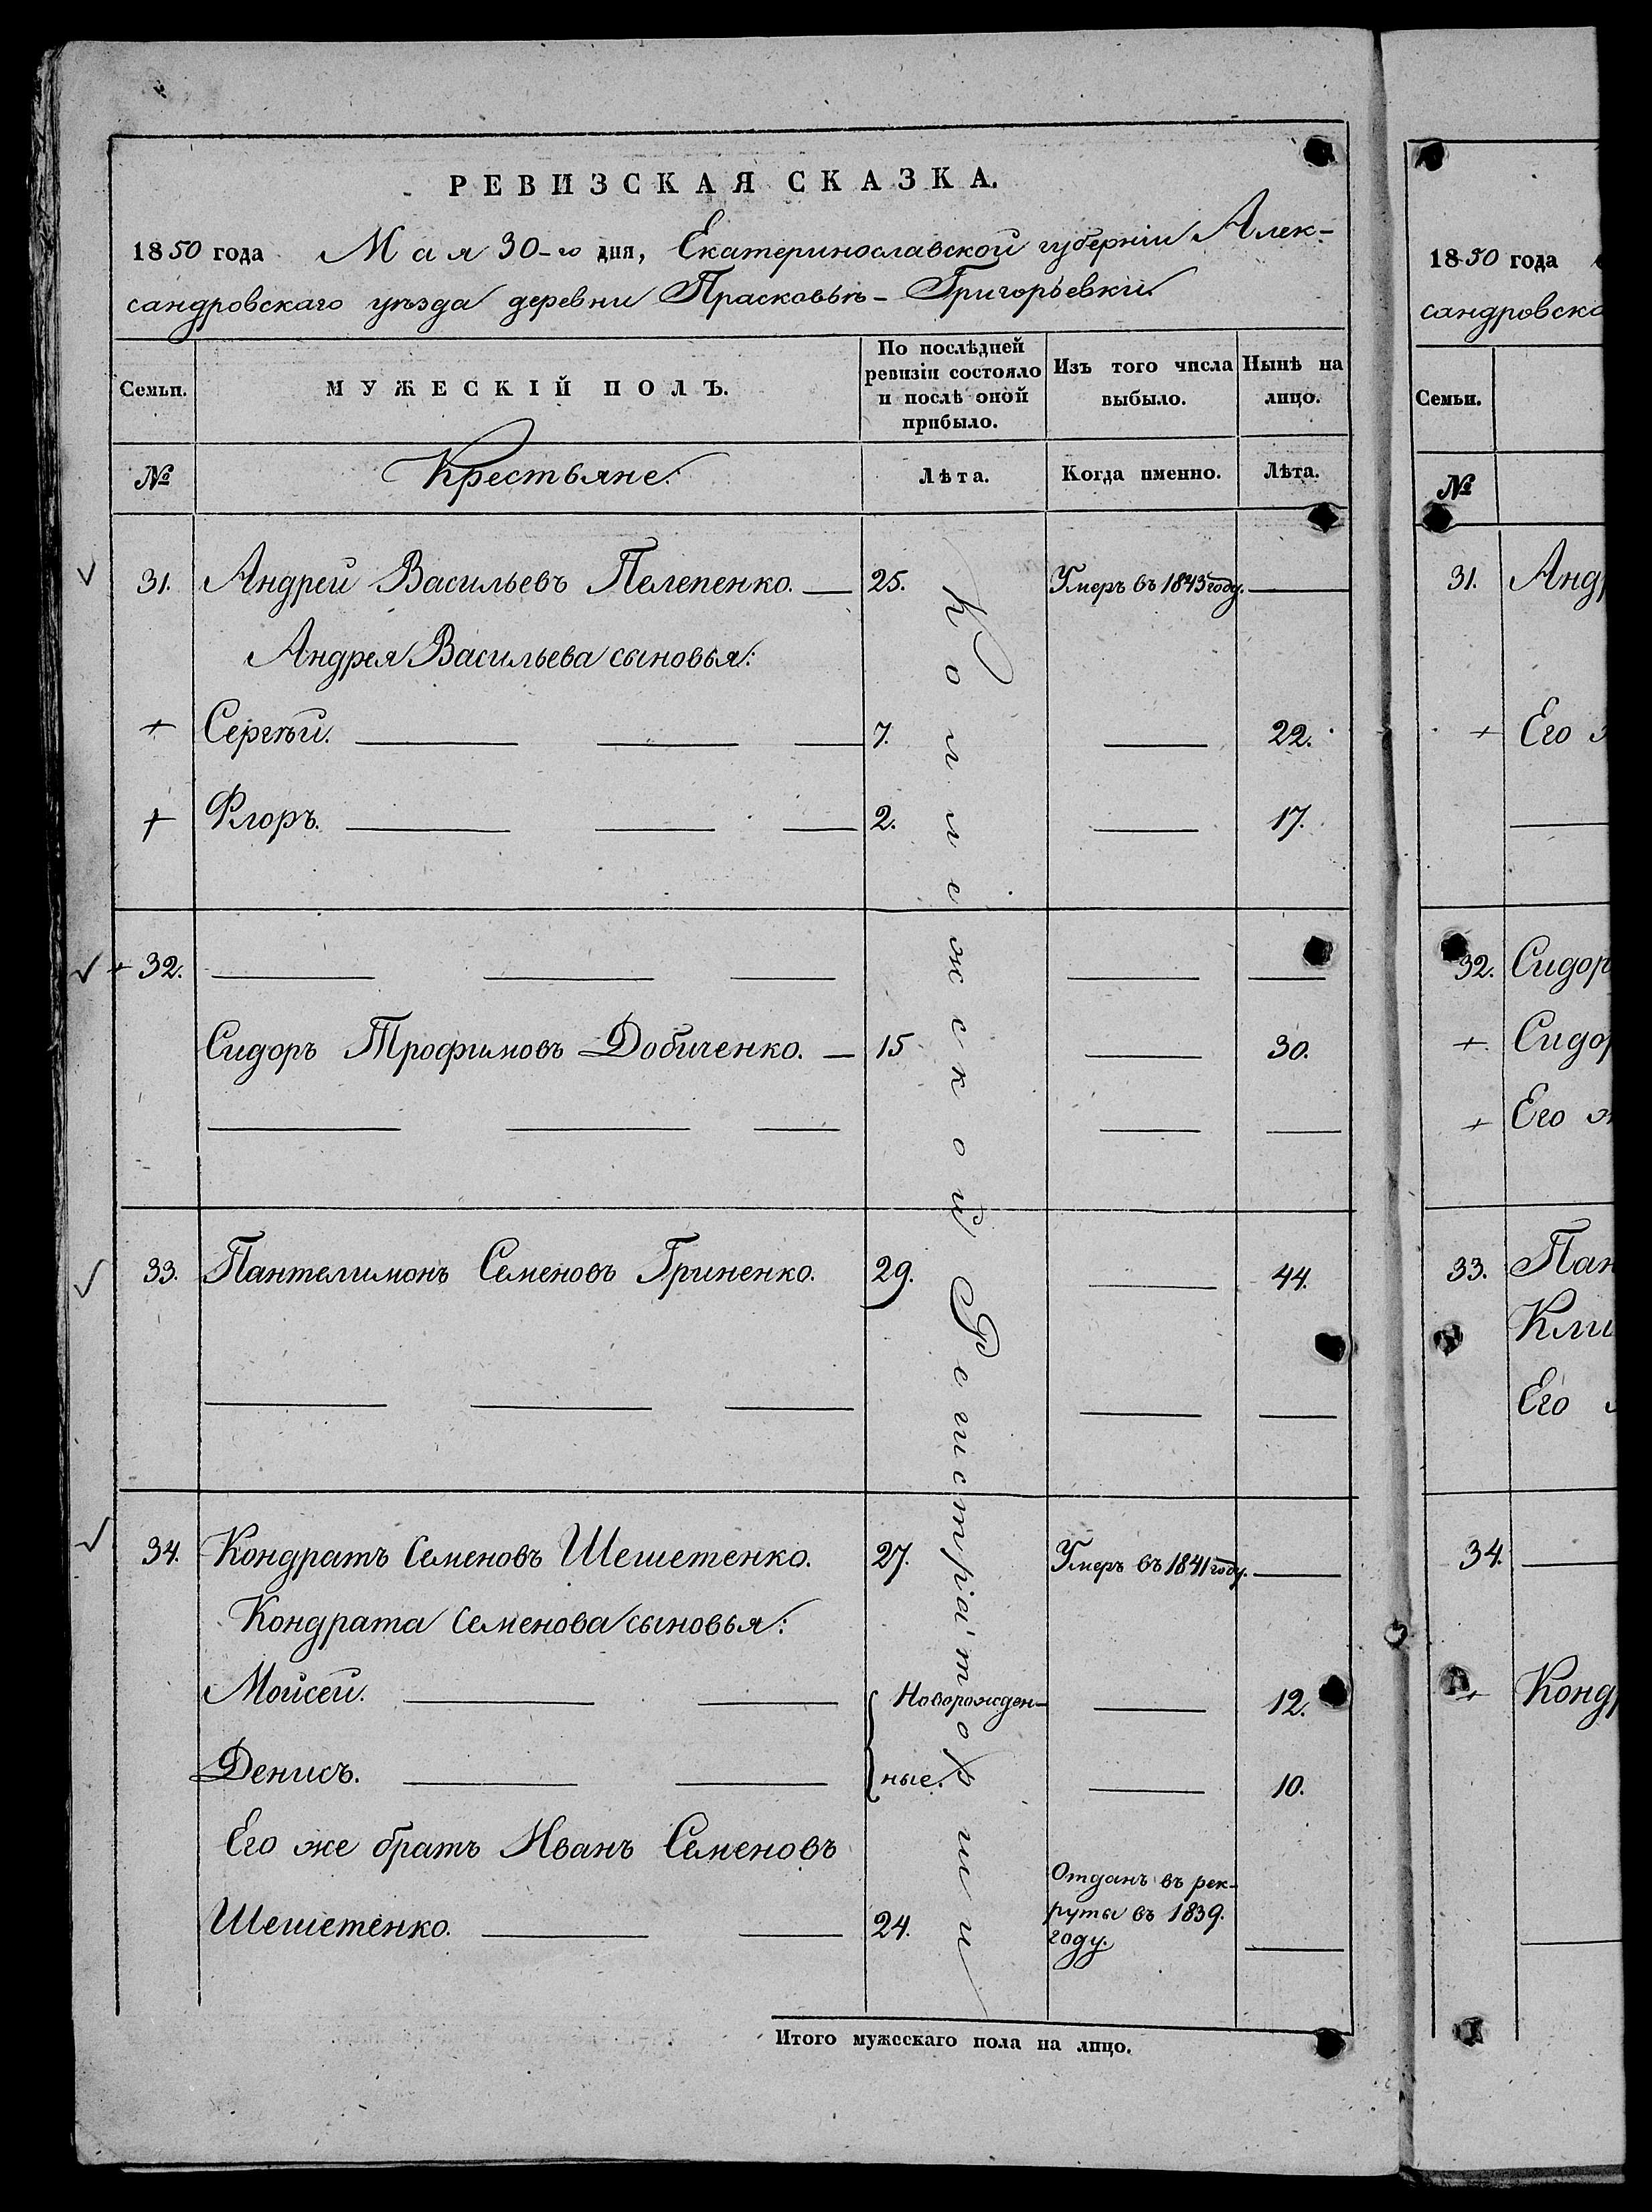 РЕВИЗСКАЯ СКАЗКА.
1850 года Мая 30-го дня, Екатеринославской губерніи Алек-
сандровскаго уѣзда деревни Прасковьѣ-Григорьевки.
Семьи.
МУЖЕСКІЙ ПОЛЪ.
По послѣдней
ревизіи состояло
и послѣ оной
прибыло.
Изъ того числа
выбыло.
Нынѣ на
лицо.
№
Крестьяне.
Лѣта.
Когда именно.
Лѣта.
31. Андрей Васильевъ Пелепенко. 25. Умеръ въ 1843 году.
Андрея Васильева сыновья:
Сергѣй. 7. 22.
Флоръ. 2. 17.
32.
Сидоръ Трофимовъ Добиченко. 15 30.
33. Пантелимонъ Семеновъ Гриненко. 29. 44.
34. Кондратъ Семеновъ Шешетенко. 27. Умеръ въ 1841 году.
Кондрата Семенова сыновья:
Мойсей. Новорожден- 12.
Денисъ. ные. 10.
Его же братъ Иванъ Семеновъ
Шешетенко. 24. Отданъ въ рек-
руты въ 1839.
году.
Итого мужескаго пола на лицо.
1850 года
сандровска
Семьи.
№
31. Андр
Его
32. Сидор
Сидор
Его ж
33. Пан
Кли
Его
34.
Конд